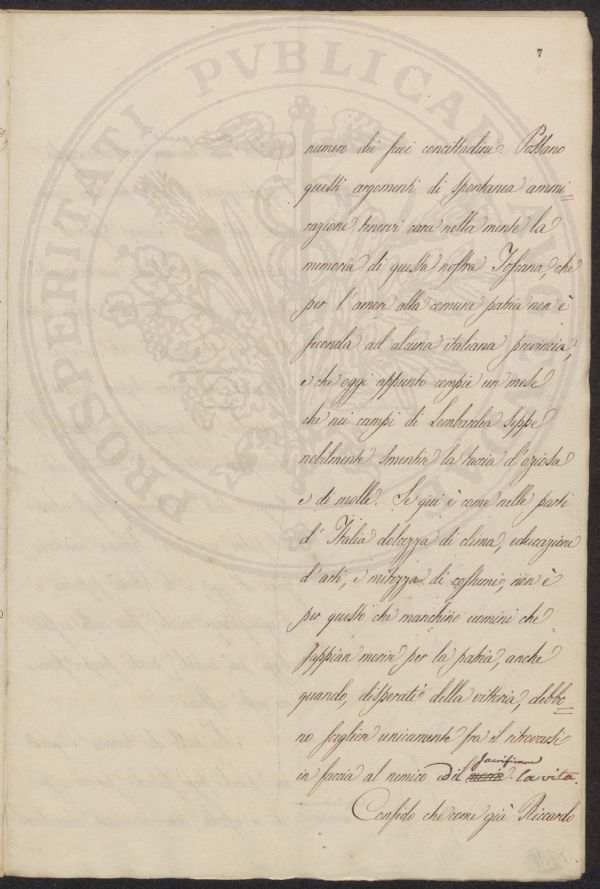 7
numero dei suoi concittadini. Possano
questi argomenti di spontanea ammi=
razione tenervi cara nella mente la
memoria di questa nostra Toscana, che
per l'amor alla comune patria non è
seconda ad alcuna italiana provincia,
e che oggi appunto compie un mese
che nei campi di Lombardia seppe
nobilmente smentir la taccia d'oziosa
e di molle. Se qui è come nelle parti
d'Italia dolcezza di clima, educazione
d'arti, e mitezza di costumi, non è
per questo che manchino uomini che
sappian morir per la patria, anche
quando, disperati della vittoria, debbo=
no scegliere unicamente fra il ritrovarsi
sacrificare
in faccia al nemico ed il morir la vita.
Confido che come già Riccardo
PROSPERITATI PVBLICAE